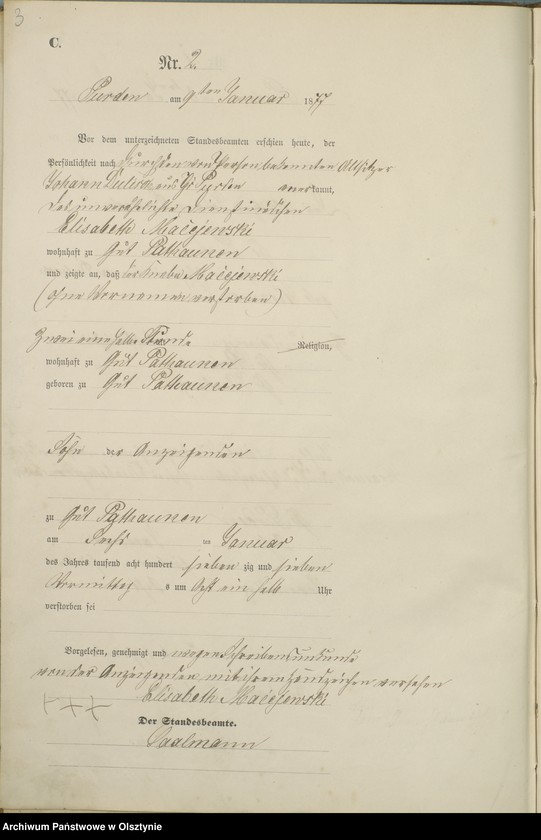 3
C.
Nr. 2.
Purden am 9ten Januar 1877
Vor dem unterzeichneten Standesbeamten erschien heute, der
Persönlichkeit nach durch den von Person bekannten Altsitzer
Johann aus Gr Purden anerkannt,
das unverehelichte Dienstmädchen
Elisabeth Maćejewski
wohnhaft zu Gut Pathaunen
und zeigte an, daß Knabe Maćejewski
(ohne Vornamen verstorben)
zwei eine halbe Stunde Religion,
wohnhaft zu Gut Pathaunen
geboren zu Gut Pathaunen
Sohn der Anzeigenden
zu Gut Pathaunen
am Sechs ten Januar
des Jahres tausend acht hundert sieben zig und sieben
Vormittags um Acht ein halb Uhr
verstorben sei
Vorgelesen, genehmigt und wegen Schreibensunkunde
von der Anzeigenden mit ihrem Handzeichen versehen
+++ Elisabeth Maćejewski
Der Standesbeamte.
Saalmann
Archiwum Państwowe w Olsztynie